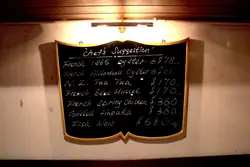 Chef's Suggestion
French 1868 oyster $78
French Gillardeau Oyster
N.Z. Tua Tua $170
French Blue Mussel $170
French Spring Chicken $360
Grilled Hapuka $360
Fish Noir $580